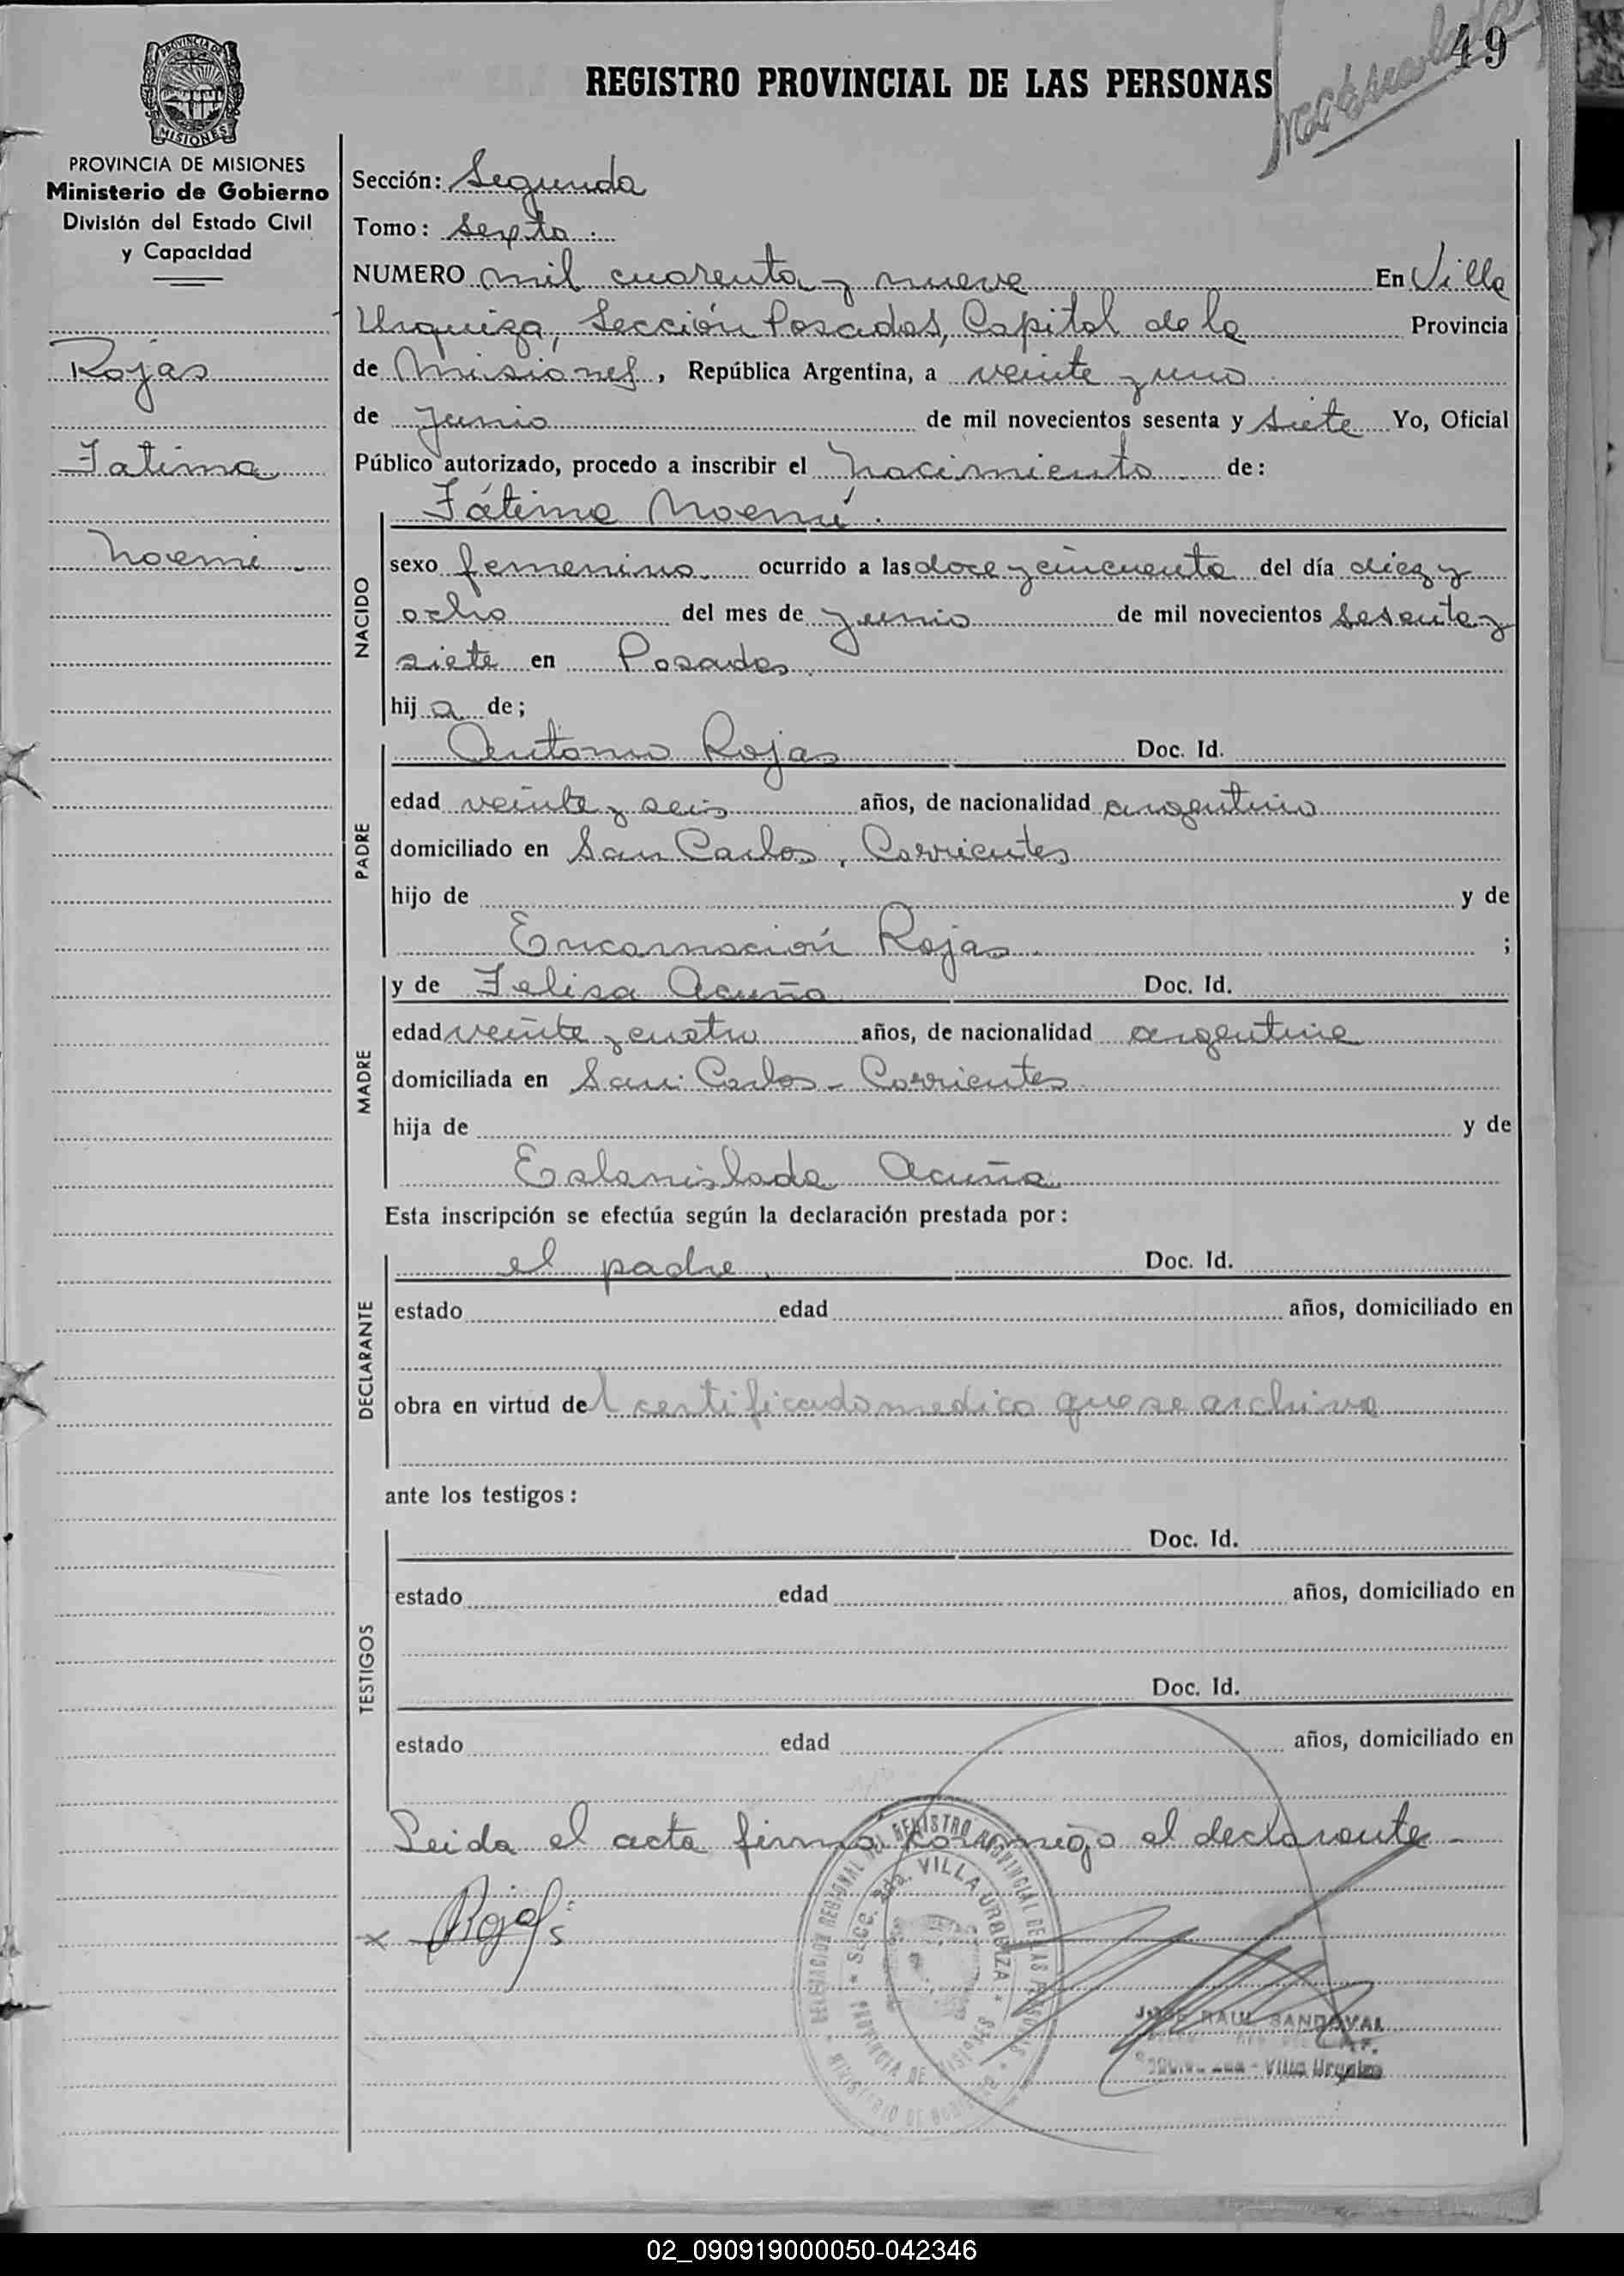 49
REGISTRO PROVINCIAL DE LAS PERSONAS
PROVINCIA DE MISIONES
PROVINCIA DE MISIONES
Ministerio de Gobierno
División del Estado Civil
y Capacidad
Rojas
Fatima
Noemi
Sección: Segunda
Tomo: Sexto
NUMERO mil cuarenta y nueve En Villa
Urquiza, Sección Posadas, Capital de la Provincia
de Misiones, República Argentina, a veinte y uno
de Junio de mil novecientos sesenta y siete Yo, Oficial
Público autorizado, procedo a inscribir el nacimiento de:
Fátima Noemí.
NACIDO
sexo femenino ocurrido a las doce y cincuenta del día diez y
ocho del mes de junio de mil novecientos sesenta y
siete en Posadas.
hija de;
PADRE
Antonio Rojas Doc. Id.
edad veinte y seis años, de nacionalidad argentino
domiciliado en San Carlos, Corrientes
hijo de y de
Encarnación Rojas ;
MADRE
y de Felisa Acuña Doc. Id.
edad veinte y cuatro años, de nacionalidad argentina
domiciliada en San Carlos - Corrientes
hija de y de
Estanislada Acuña
Esta inscripción se efectúa según la declaración prestada por:
DECLARANTE
el padre. Doc. Id.
estado edad años, domiciliado en
obra en virtud del certificado medico que se archiva
ante los testigos:
TESTIGOS
Doc. Id.
estado edad años, domiciliado en
Doc. Id.
estado edad años, domiciliado en
Leida el acta firmó conmigo el declarante -
x Rojas
DELEGACION REGIONAL DEL REGISTRO PROVINCIAL DE LAS PERSONAS
MINISTERIO DE GOBIERNO
Secc. 2da. VILLA URQUIZA
PROVINCIA DE MISIONES
JOSE RAUL SANDOVAL
2da - Villa Urquiza
02_090919000050-042346